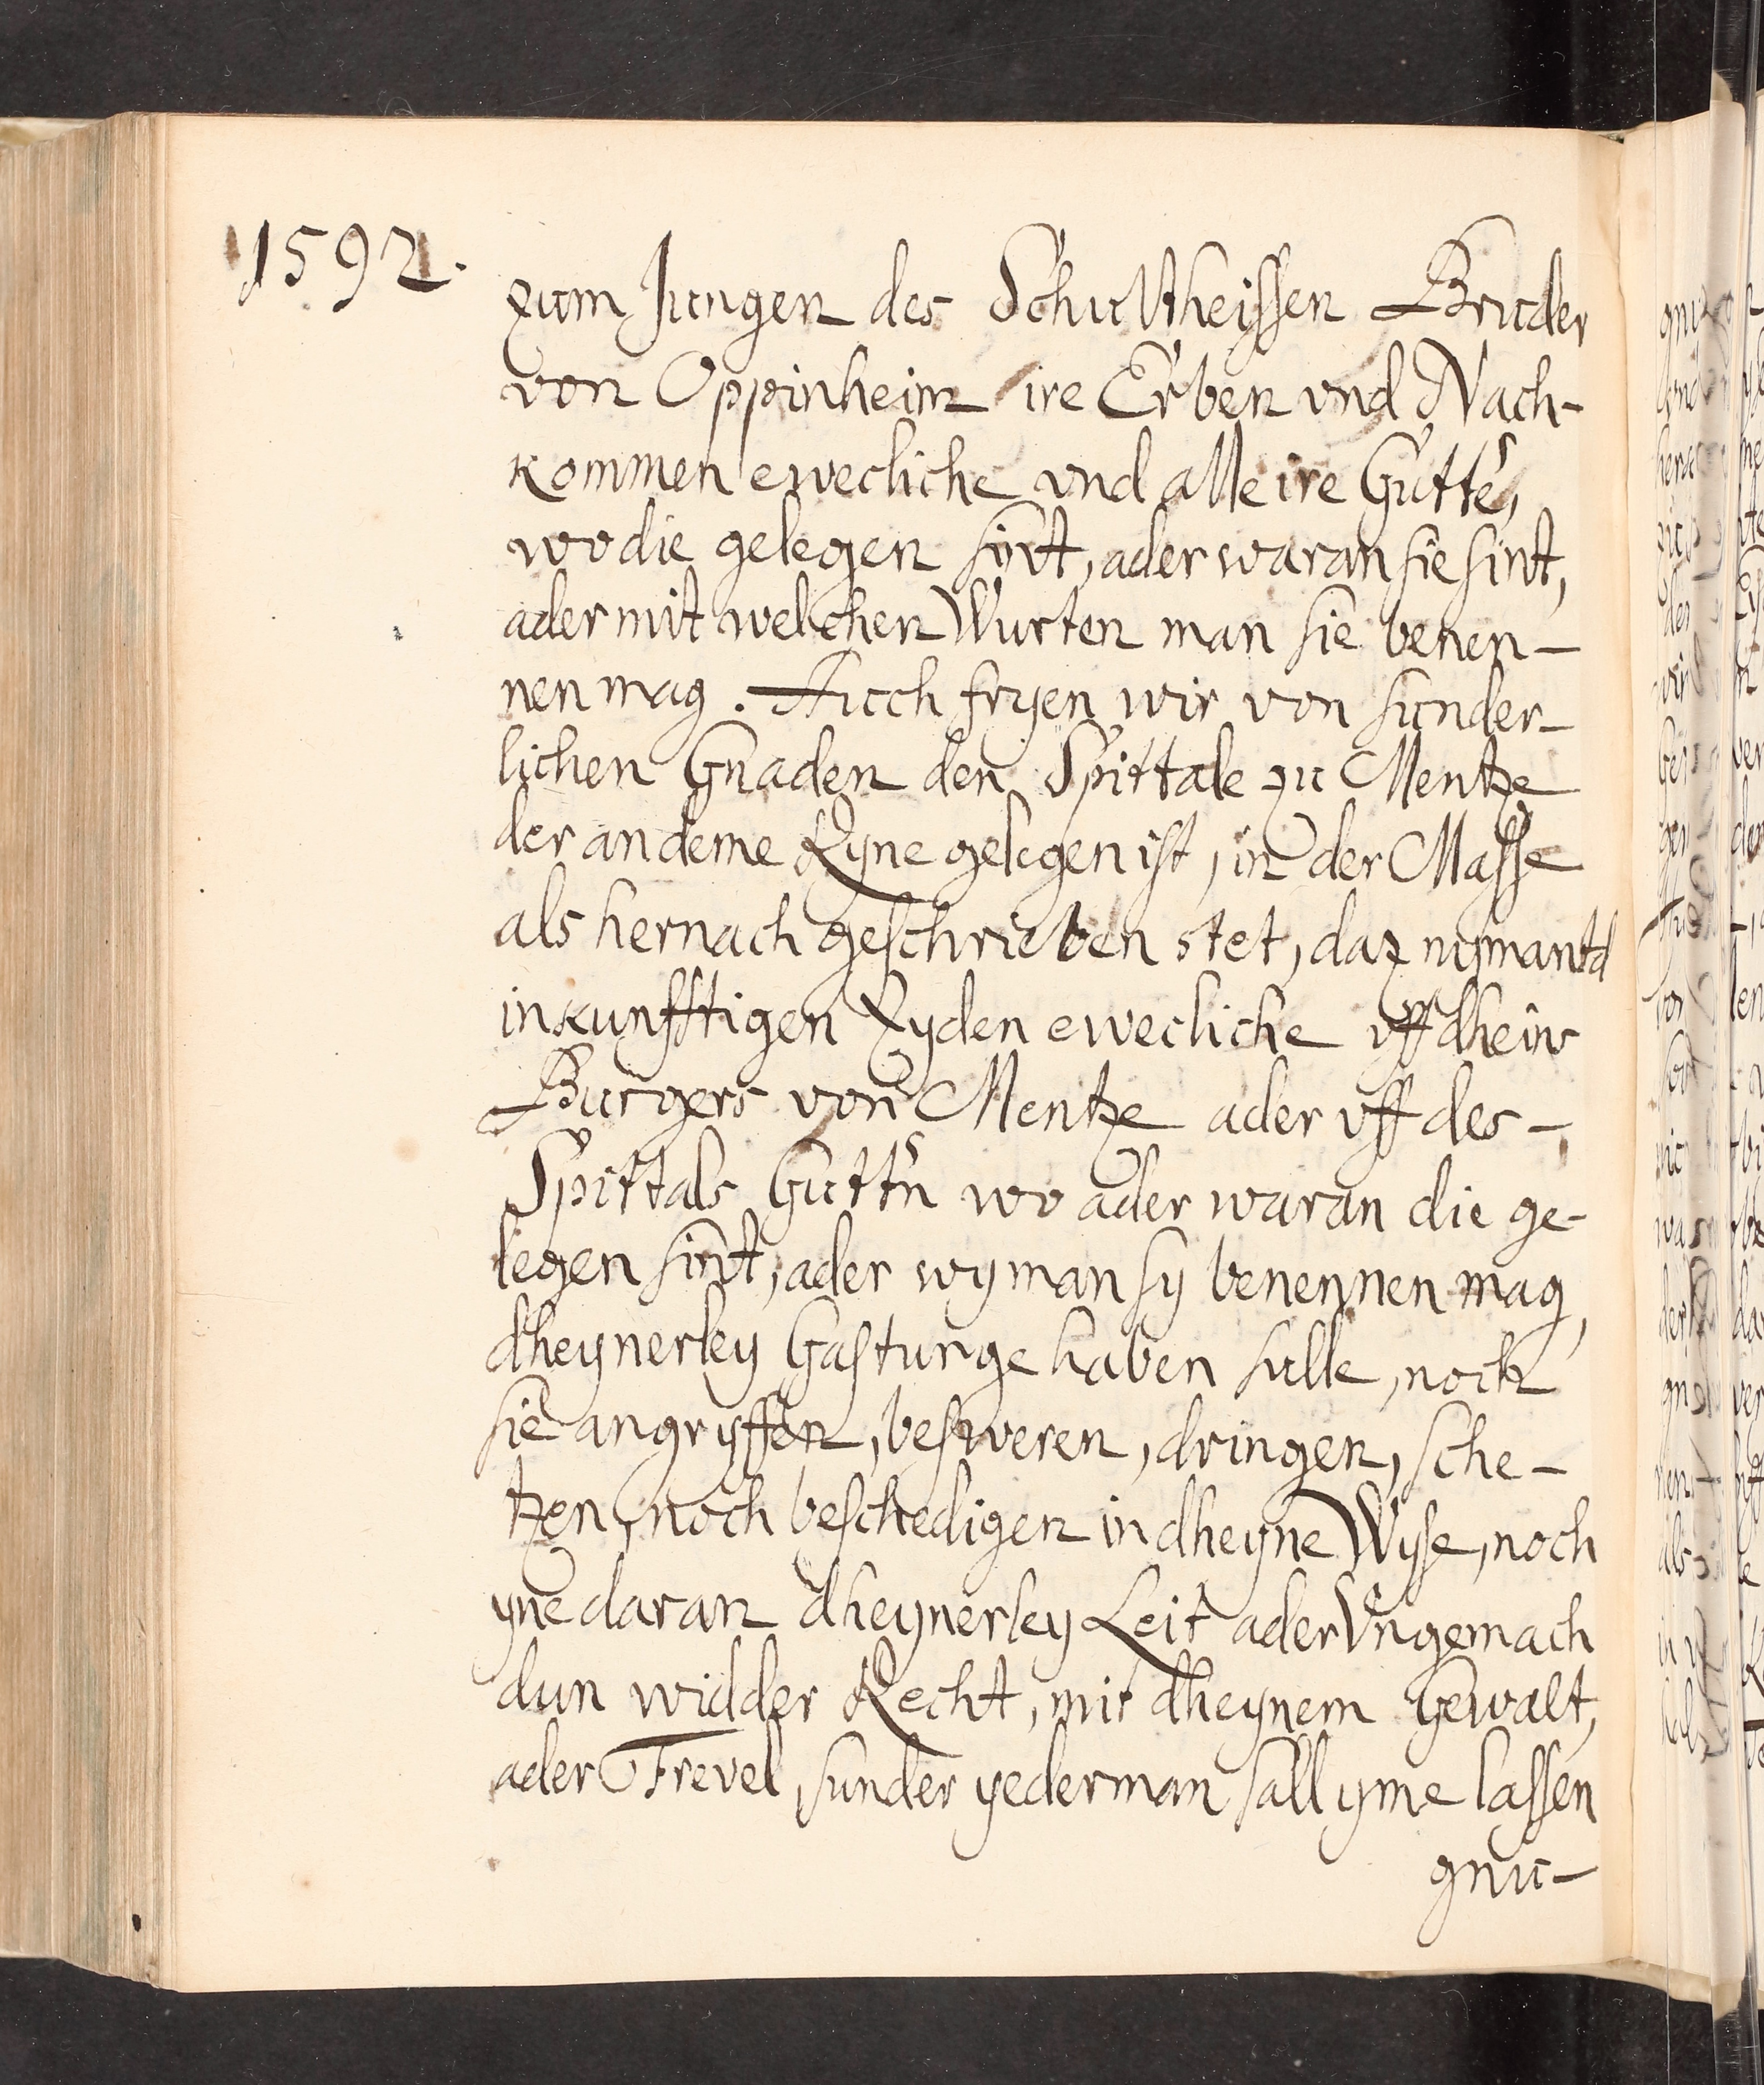 1592.
zum Jungen des Schultheissen Bruder
von Oppinheim ire Erben vnd Nach-
kommen ewecliche vnd alle ire Gutte,
wo die gelegen sint, ader waran sie sint,
ader mit welichen Wurten man sie benen-
nen mag. Auch fryen wir von sunder-
lichen Gnaden den Spittale zu Mentze
der an deme Ryne gelegen ist, in der Masse
als hernach geschrieben stet, daz nymantd
in kunfftigen Zyden ewecliche vff dheins
Burgers von Mentze ader vff des-
Spittals Guttn wo ader waran die ge-
legen sint, ader wy man sy benennen mag,
dheynerley Gasturge haben sulle, noch
sie angryffen, besweren, dringen, sche-
tzen, noch beschedigen in dheyne Wyse, noch
yne daran dheynerley Leit ader Vngemach
dun widder Recht, mit dheynem Gewalt,
ader Frevel, sunder yederman sall yme lassen
gnu-